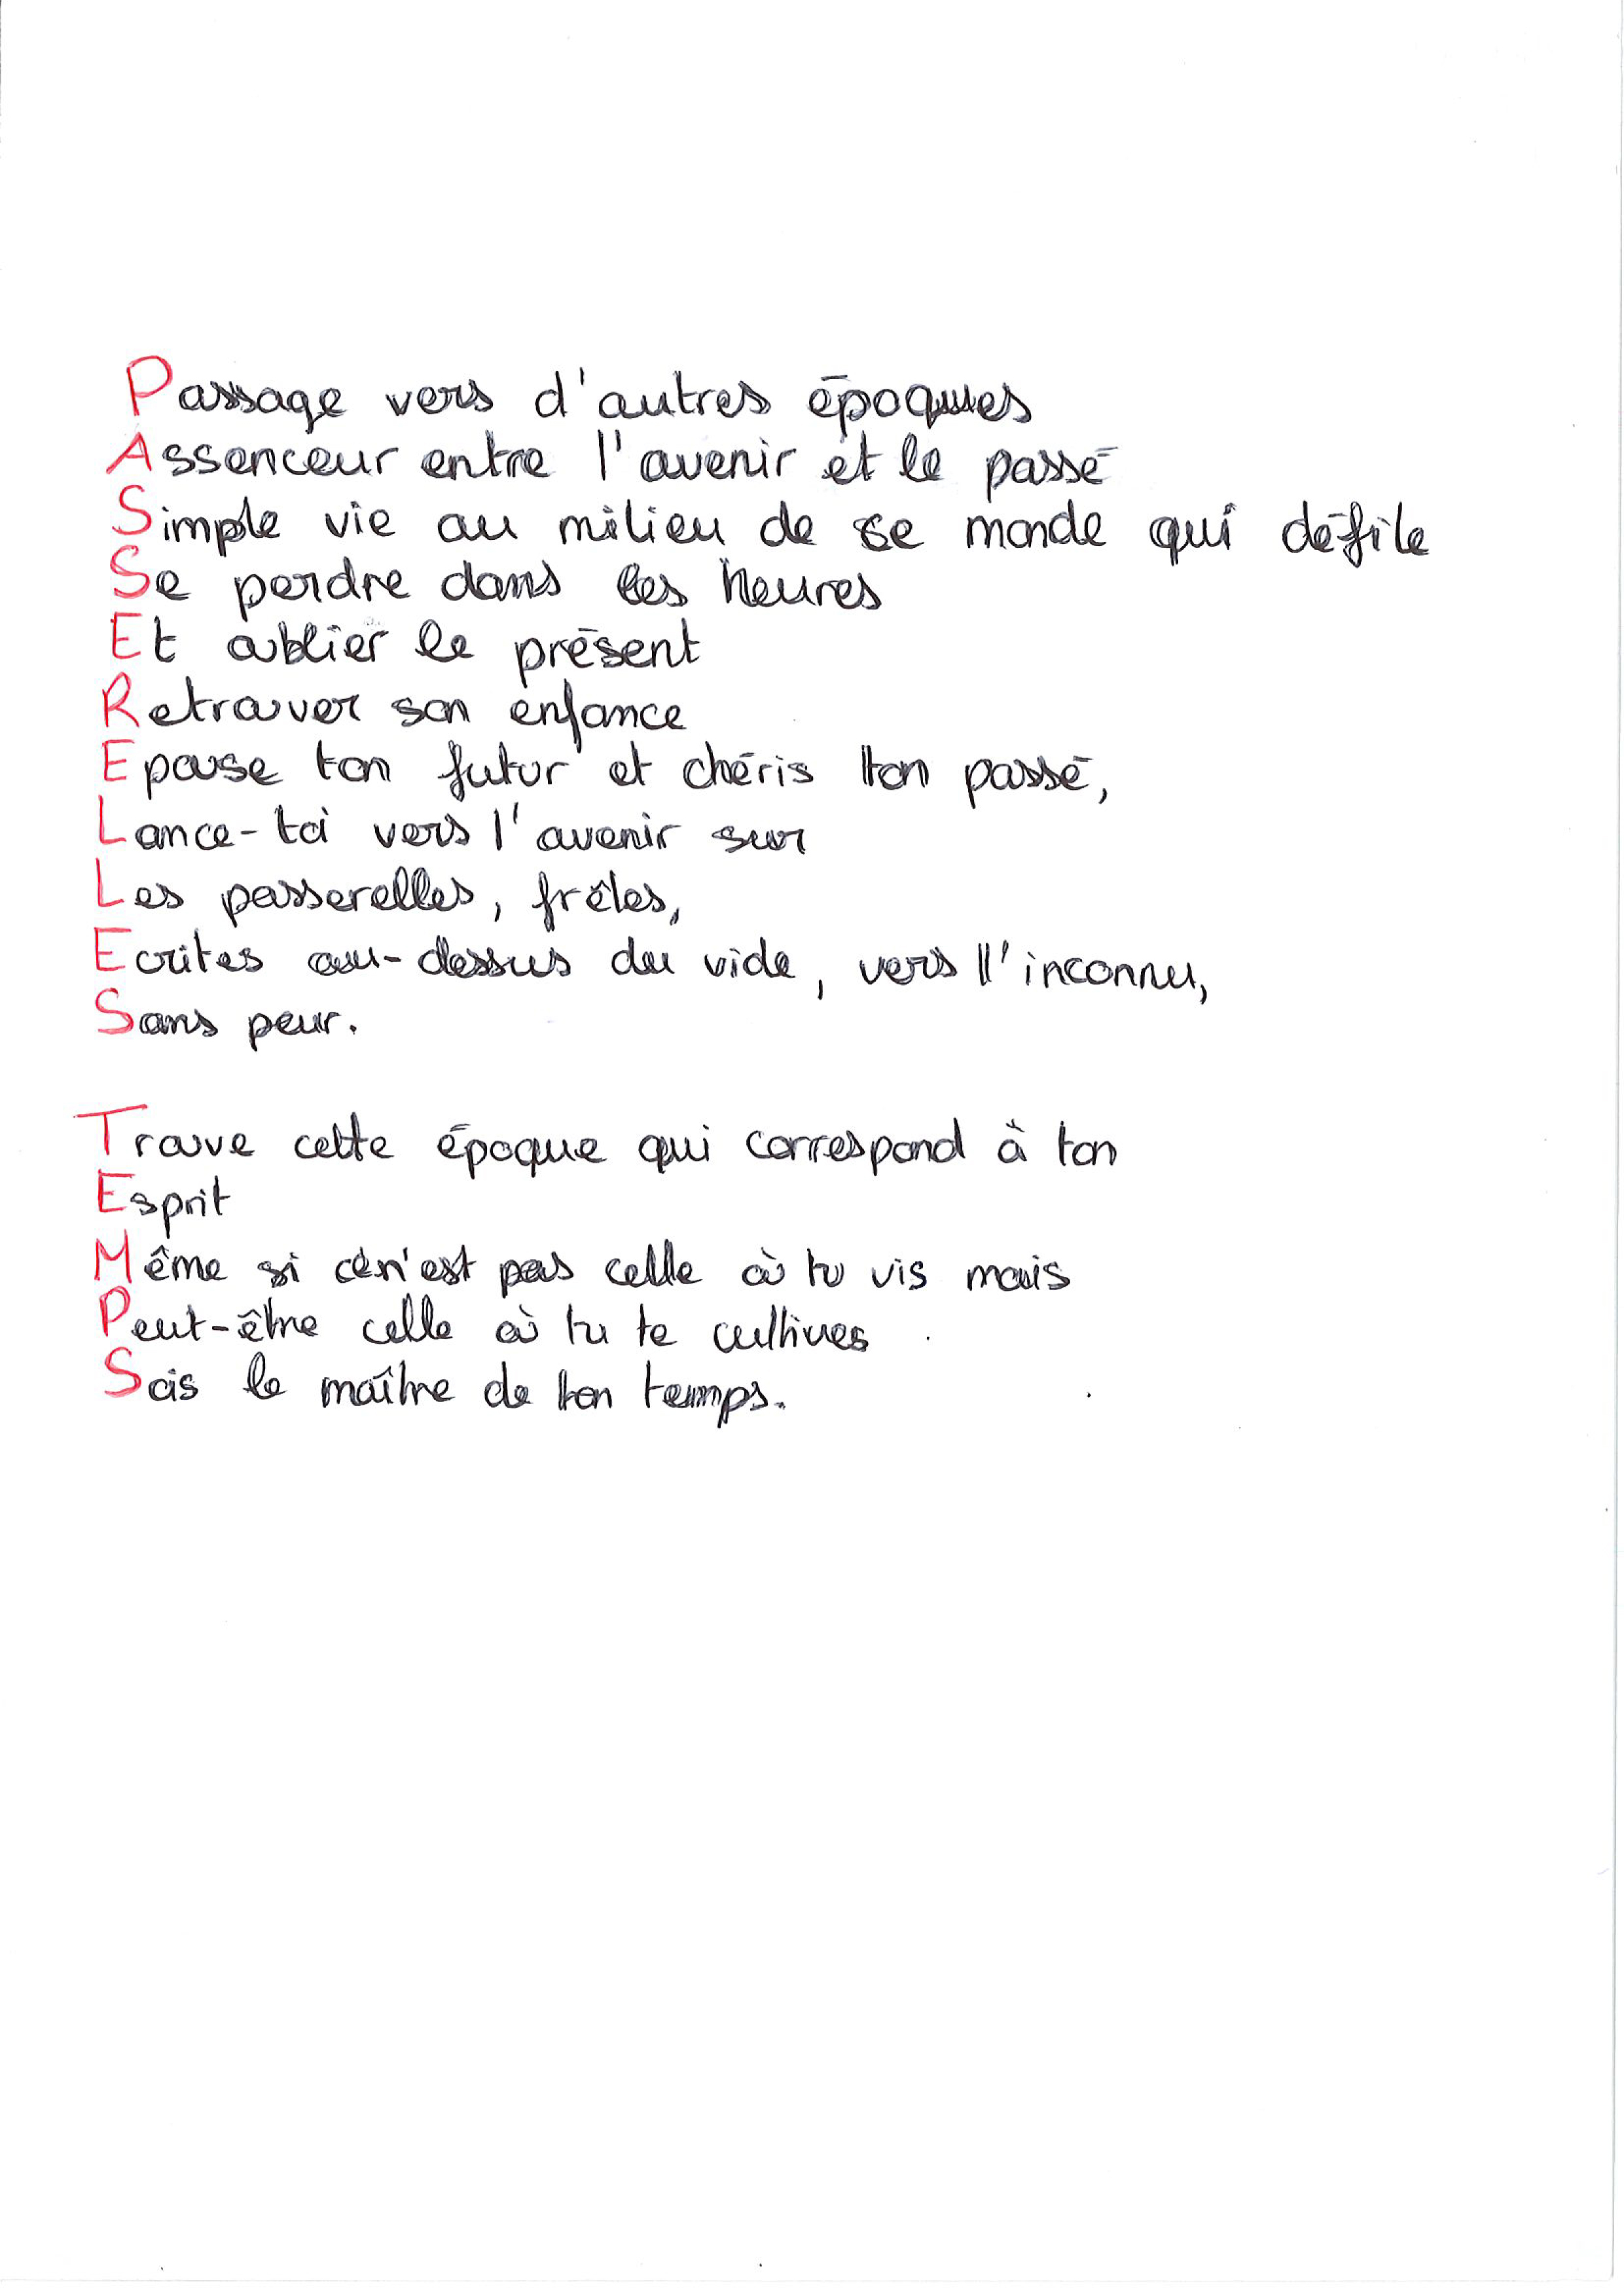 Passage vers d'autres époques
Assenceur entre l'avenir et le passé
Simple vie au milieu de ce monde qui défile
Se perdre dans les heures
Et oublier le présent
Retrouver son enfance
Epouse ton futur et chéris ton passé,
Lance-toi vers l'avenir sur
Les passerelles, frêles,
Ecrites au-dessus du vide, vers l'inconnu,
Sans peur.
Trouve cette époque qui correspond à ton
Esprit
Même si ce n'est pas celle où tu vis mais
Peut-être celle où tu te cultives
Sois le maître de ton temps.